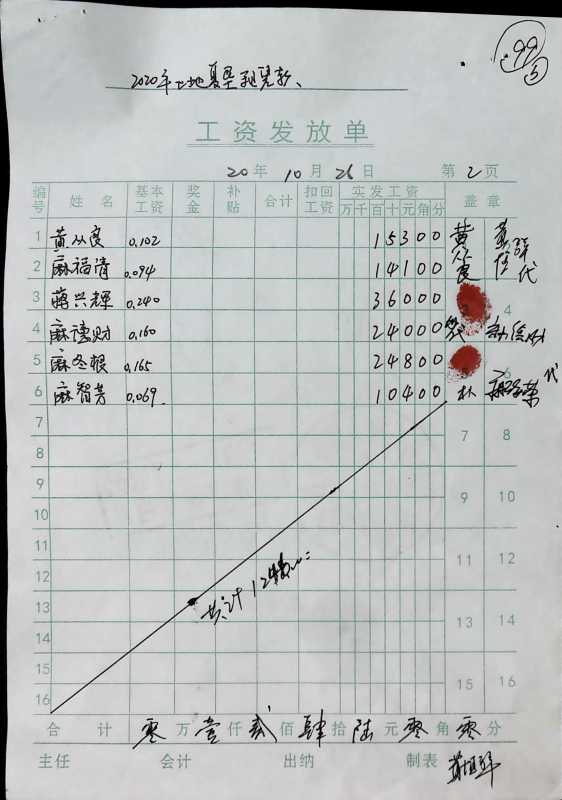 99
5
2020年土地复垦租赁款、
工资发放单
20年10月26日 第2页
编号 姓名 基本工资 奖金 补贴 合计 扣回工资 实发工资 盖章
万 千 百 十 元 角 分
1 黄从良 0.102 15300 黄从良
2 麻福清 0.094 14100 代
3 蒋兴辉 0.240 36000 4
4 麻德财 0.160 24000
5 麻冬根 0.165 24800 6
6 麻智芳 0.069 10400 代
7 7 8
8
9 9 10
10
11 11 12
12
共计12
13 13 14
14
15 15 16
16
合计 零万壹仟贰佰肆拾陆元零角零分
主任 会计 出纳 制表